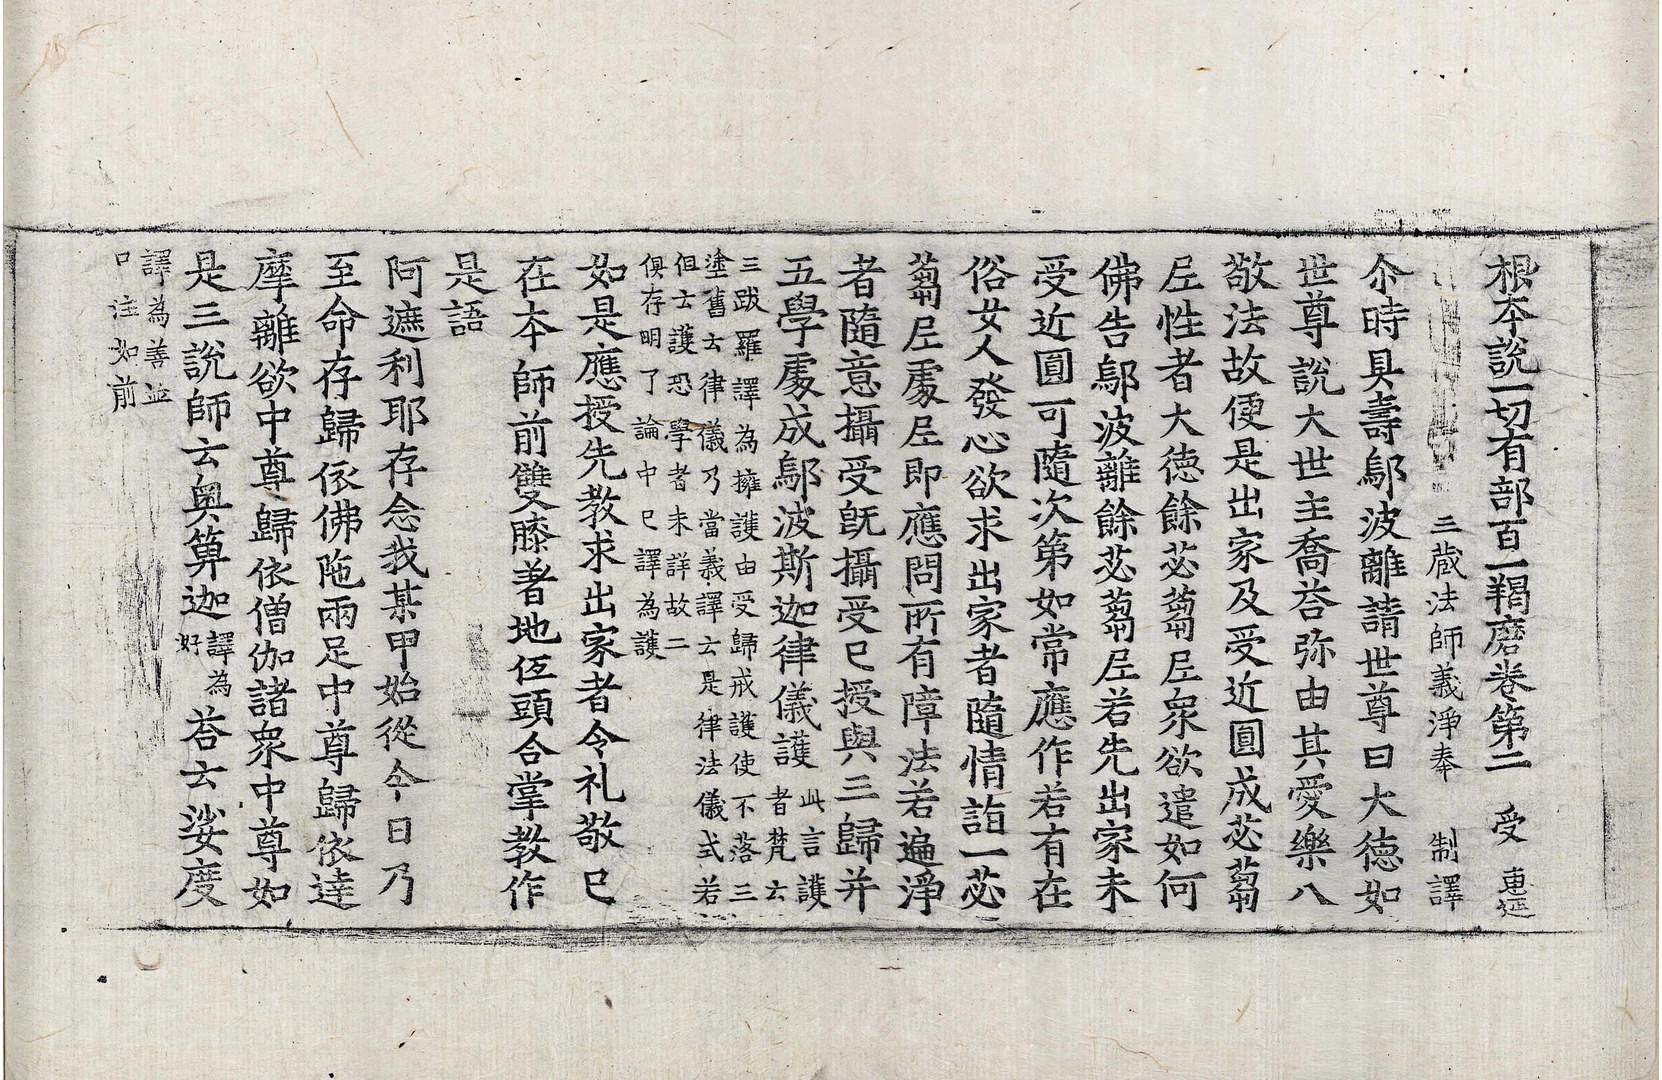 根本說一切有部百一羯磨卷第二 受 惠延
三蔵法師義淨奉 制譯
尒時具壽鄔波離請世尊曰大徳如
世尊說大世主喬荅弥由其愛樂八
敬法故便是出家及受近圓成苾蒭
㞐性者大徳餘苾蒭㞐衆欲遣如何
佛告鄔波離餘苾蒭㞐若先出家未
受近圓可隨次第如常應作若有在
俗女人發心欲求出家者隨情詣一苾
蒭㞐處㞐即應問所有障法若遍淨
者隨意攝受旣攝受已授與三歸并
五學處成鄔波斯迦律儀護此言護
者梵云
三跋羅譯為擁護由受歸戒護使不落三
塗舊云律儀乃當義譯云是律法儀式若
但云護恐學者未詳故二
俱存明了論中已譯為護
如是應授先教求出家者令礼敬已
在本師前雙膝著地伍頭合掌教作
是語
阿遮利耶存念我某甲始從今日乃
至命存歸依佛陁兩足中尊歸依達
摩離欲中尊歸依僧伽諸衆中尊如
是三說師云奥箄迦譯為
好荅云娑度
譯為善並
口注如前